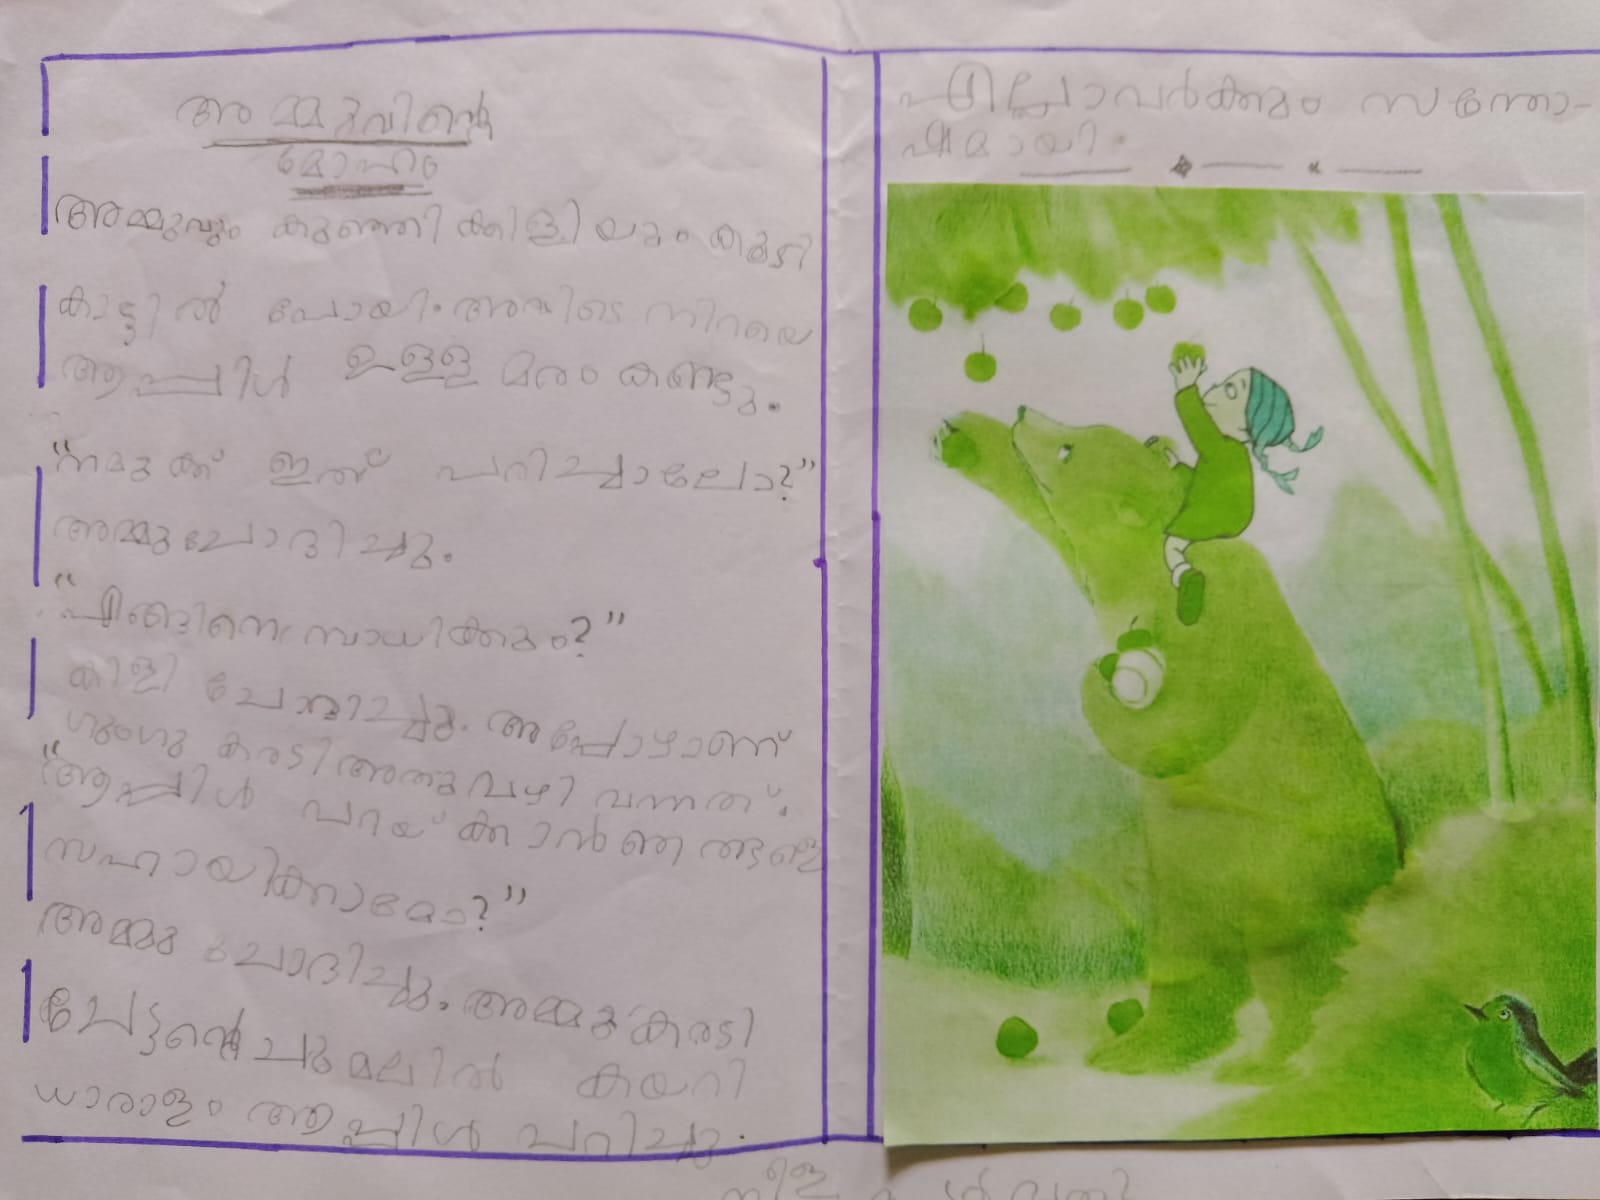 അമ്മുവിന്റെ
മോഹം
അമ്മുവും കുഞ്ഞിക്കിളിയും കൂടി
കാട്ടിൽ പോയി. അവിടെ നിറയെ
ആപ്പിൾ ഉള്ള മരം കണ്ടു.
"നമുക്ക് ഇത് പറിച്ചാലോ?"
അമ്മു ചോദിച്ചു.
"എങ്ങിനെ സാധിക്കും?"
കിളി ചോദിച്ചു. അപ്പോഴാണ്
ഗുംഗു കരടി അതുവഴി വന്നത്.
"ആപ്പിൾ പറയ്ക്കാൻ ഞങ്ങളെ
സഹായിക്കാമോ?"
അമ്മു ചോദിച്ചു. അമ്മു കരടി
ചേട്ടന്റെ ചുമലിൽ കയറി
ധാരാളം ആപ്പിൾ പറിച്ചു.
എല്ലാവർക്കും സന്തോ-
ഷമായി.